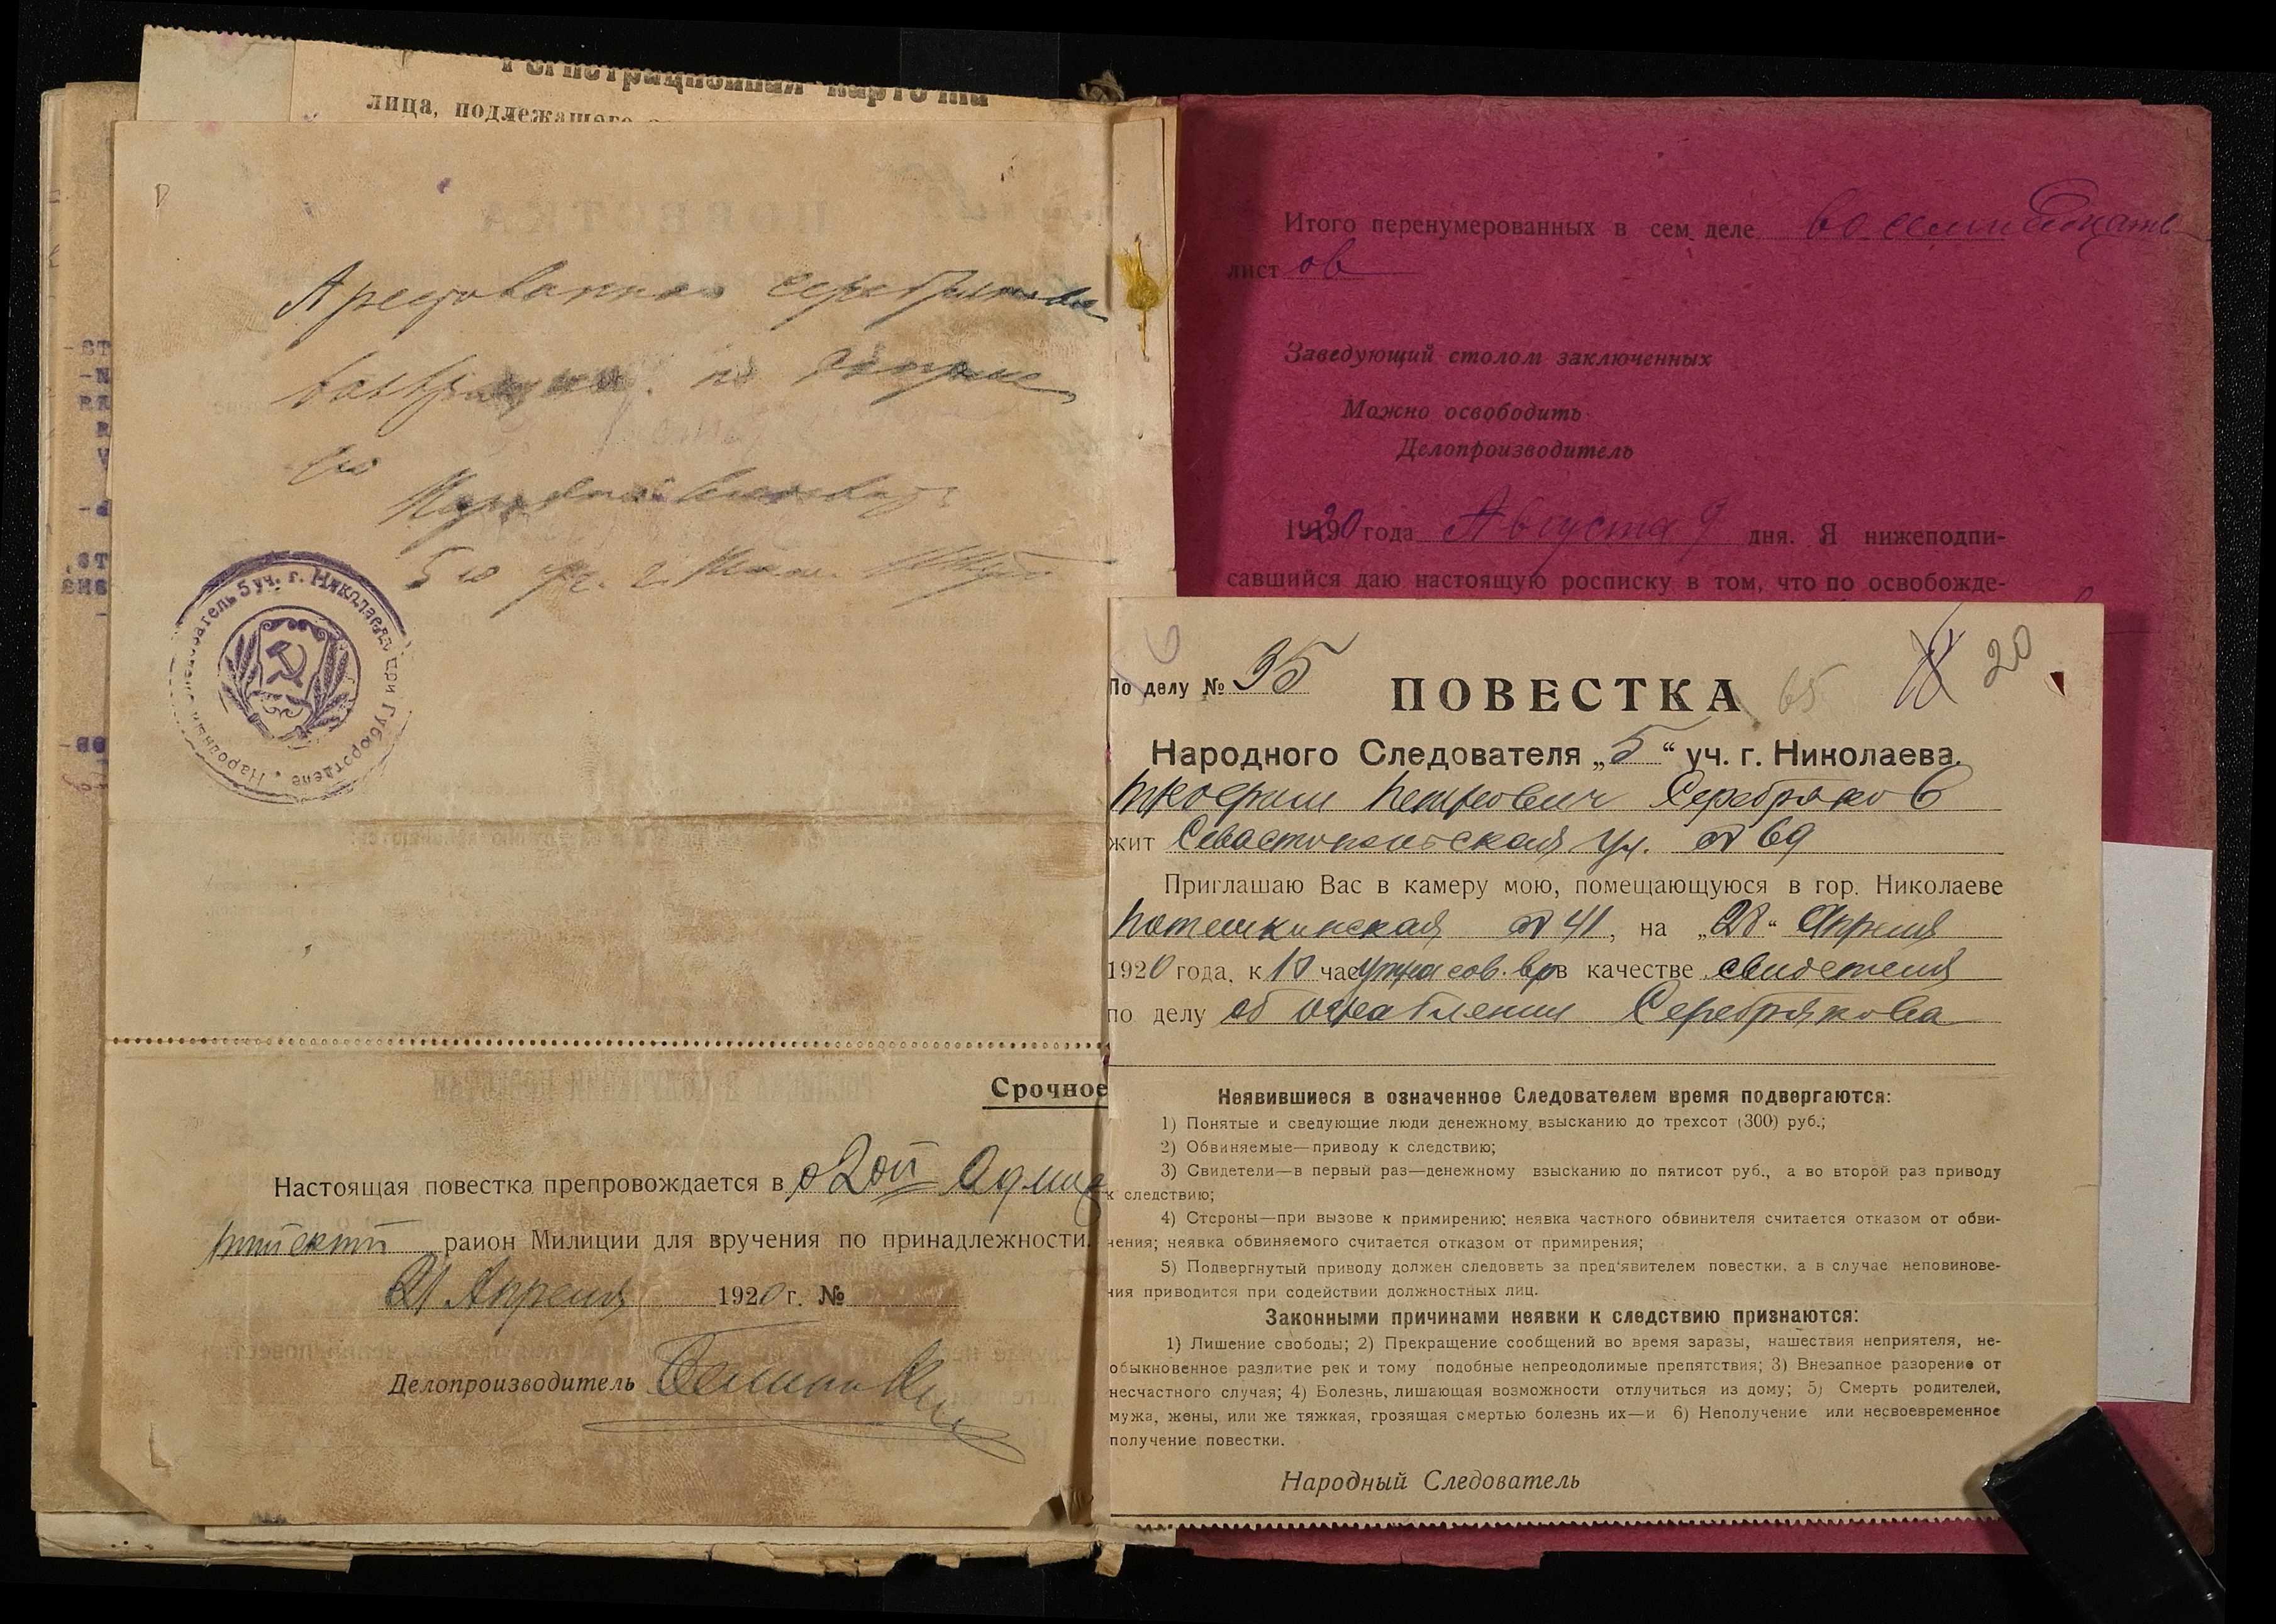 Регистрационная карточка
лица, подлежащего
Арестованная Серебрякова
возвращена по допросе
5 го уч. г. Ник.
Народный Следователь 5 уч. г. Николаева при Губюротделе
Срочное
Настоящая повестка препровождается в 2ой Адми
район Милиции для вручения по принадлежности.
21 Апреля 1920 г. №
Делопроизводитель
Итого перенумерованных в сем деле восемнадцать
лист ов
Заведующий столом заключенных
Можно освободить
Делопроизводитель
1920 года Августа 9 дня. Я нижеподпи-
савшийся даю настоящую росписку в том, что по освобожде-
По делу № 95
65
20
ПОВЕСТКА
Народного Следователя „5“ уч. г. Николаева.
Петрович Серебряков
жит Севастопольская ул. № 69
Приглашаю Вас в камеру мою, помещающуюся в гор. Николаеве
Потемкинская № 41, на „28“ Апреля
1920 года, к 10 час утра сов. вр в качестве свидетеля
по делу об ограблении Серебрякова
Неявившиеся в означенное Следователем время подвергаются:
1) Понятые и сведующие люди денежному взысканию до трехсот (300) руб.;
2) Обвиняемые—приводу к следствию;
3) Свидетели—в первый раз—денежному взысканию до пятисот руб., а во второй раз приводу
к следствию;
4) Стороны—при вызове к примирению: неявка частного обвинителя считается отказом от обви-
нения; неявка обвиняемого считается отказом от примирения;
5) Подвергнутый приводу должен следовать за пред'явителем повестки, а в случае неповинове-
ния приводится при содействии должностных лиц.
Законными причинами неявки к следствию признаются:
1) Лишение свободы; 2) Прекращение сообщений во время заразы, нашествия неприятеля, не-
обыкновенное разлитие рек и тому подобные непреодолимые препятствия; 3) Внезапное разорение от
несчастного случая; 4) Болезнь, лишающая возможности отлучиться из дому; 5) Смерть родителей,
мужа, жены, или же тяжкая, грозящая смертью болезнь их—и 6) Неполучение или несвоевременное
получение повестки.
Народный Следователь